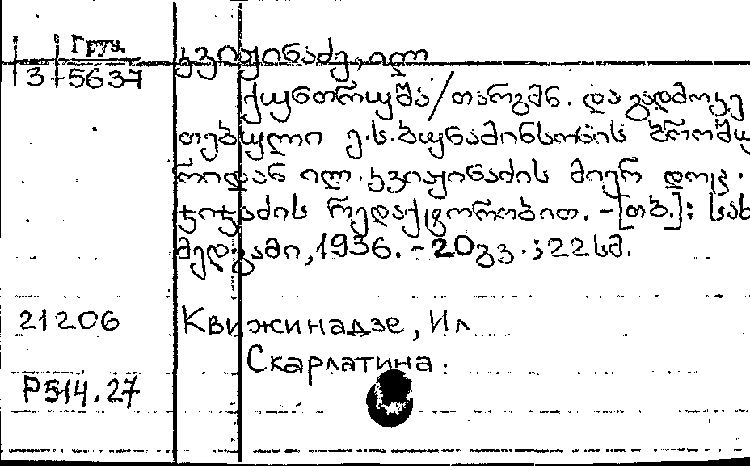 Груз.
3 5637
კვიჟინაძე, ილ
ქუნთრუშა/თარგმნ. და გადმოკე
თებული ე.ს.ბუნამინსონის ბროშუ
რიდან ილ. კვიჟინაძის მიერ დოც.
ჯიჯაძის რედაქტორობით. - [თბ.]: სახ
მედგამი, 1936. - 20გვ.; 22სმ.
21206 Квижинадзе, Ил
Скарлатина.
Р514.27